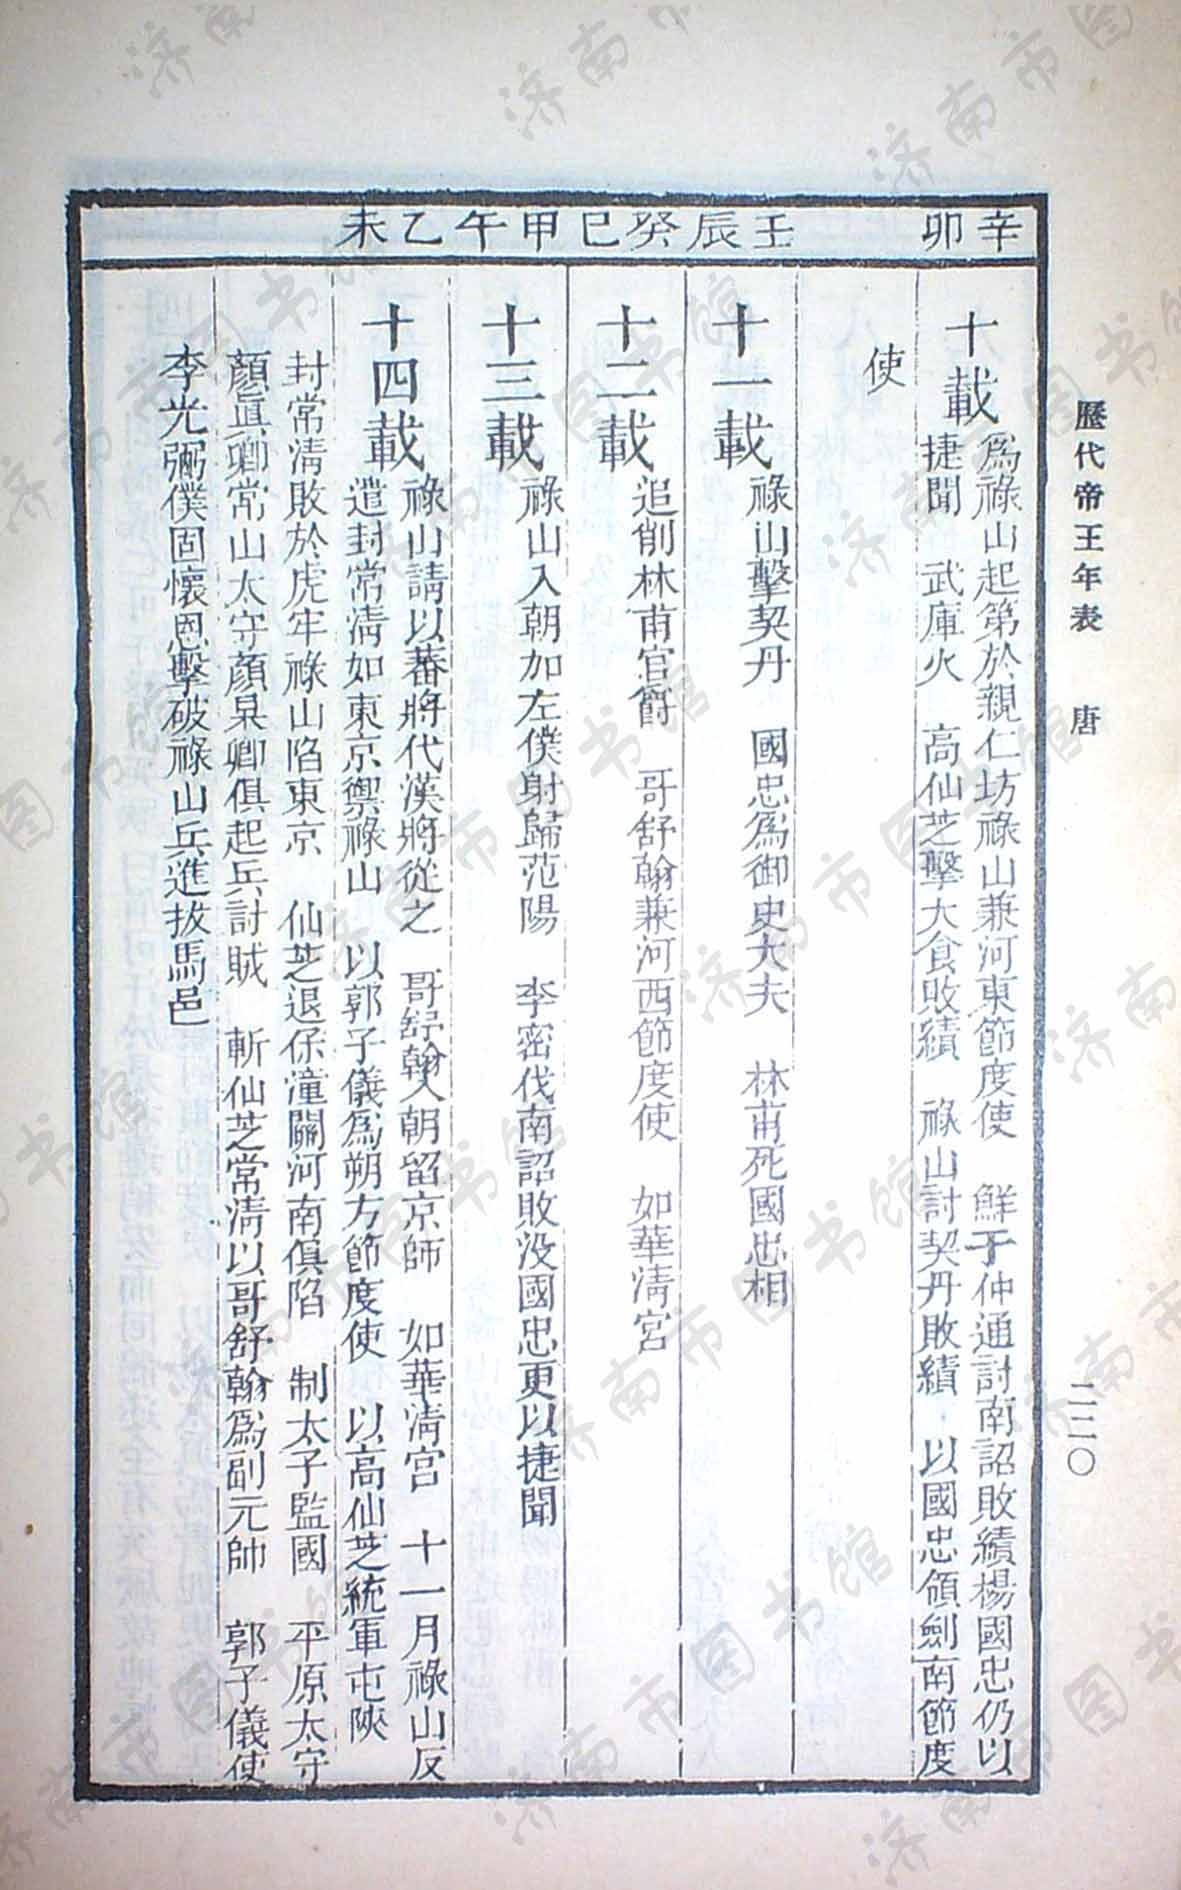 歷代帝王年表　唐　二二〇
辛卯
十載
爲祿山起第於親仁坊祿山兼河東節度使　鮮于仲通討南詔敗績楊國忠仍以
捷聞　武庫火　高仙芝擊大食敗績　祿山討契丹敗績　以國忠領劍南節度
使
壬辰
十一載
祿山擊契丹　國忠爲御史大夫　林甫死國忠相
癸巳
十二載
追削林甫官爵　哥舒翰兼河西節度使　如華淸宮
甲午
十三載
祿山入朝加左僕射歸范陽　李密伐南詔敗沒國忠更以捷聞
乙未
十四載
祿山請以蕃將代漢將從之　哥舒翰入朝留京師　如華淸宮　十一月祿山反
遣封常淸如東京禦祿山　以郭子儀爲朔方節度使　以高仙芝統軍屯陝
封常淸敗於虎牢祿山陷東京　仙芝退保潼關河南俱陷　制太子監國　平原太守
顏眞卿常山太守顏杲卿俱起兵討賊　斬仙芝常淸以哥舒翰爲副元帥　郭子儀使
李光弼僕固懷恩擊破祿山兵進拔馬邑
济南市图书馆